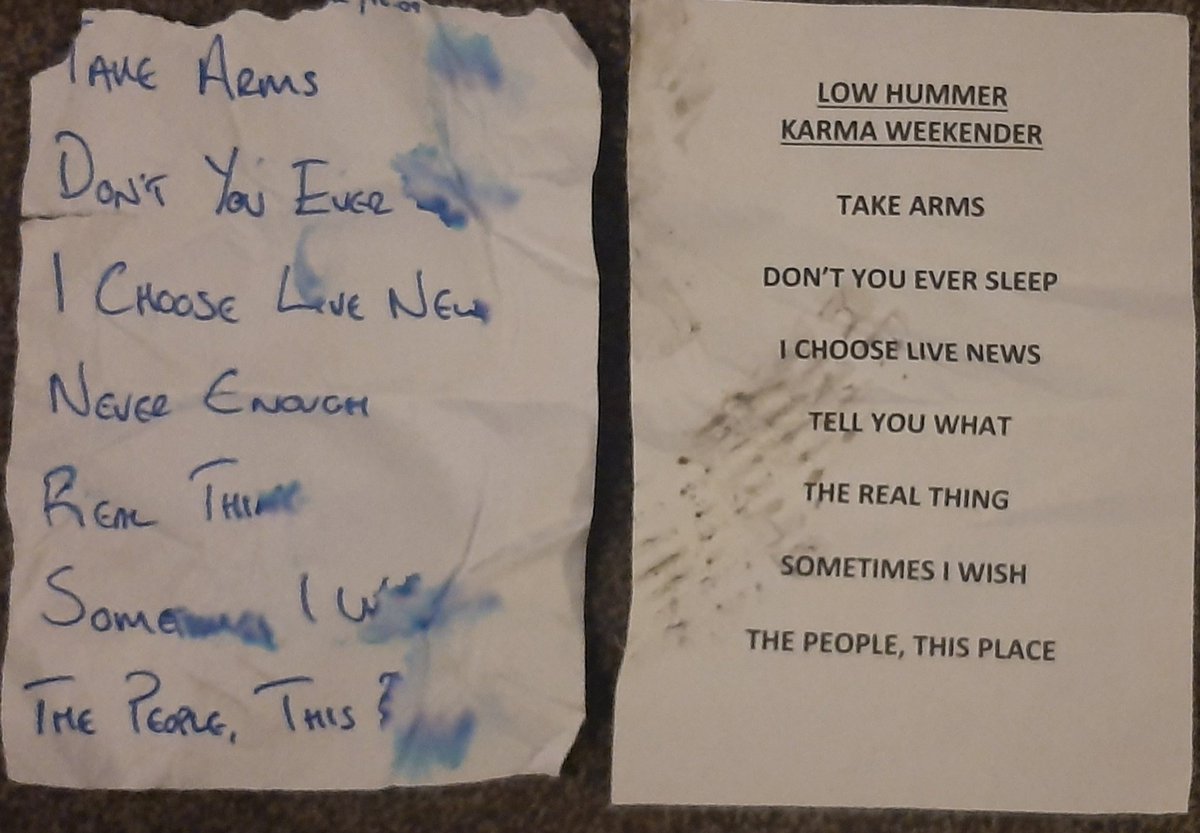 TAKE ARMS
DON'T YOU EVER
I CHOOSE LIVE NEW
NEVER ENOUGH
REAL THING
SOMETIMES I
THE PEOPLE, THIS
LOW HUMMER
KARMA WEEKENDER
TAKE ARMS
DON'T YOU EVER SLEEP
I CHOOSE LIVE NEWS
TELL YOU WHAT
THE REAL THING
SOMETIMES I WISH
THE PEOPLE, THIS PLACE